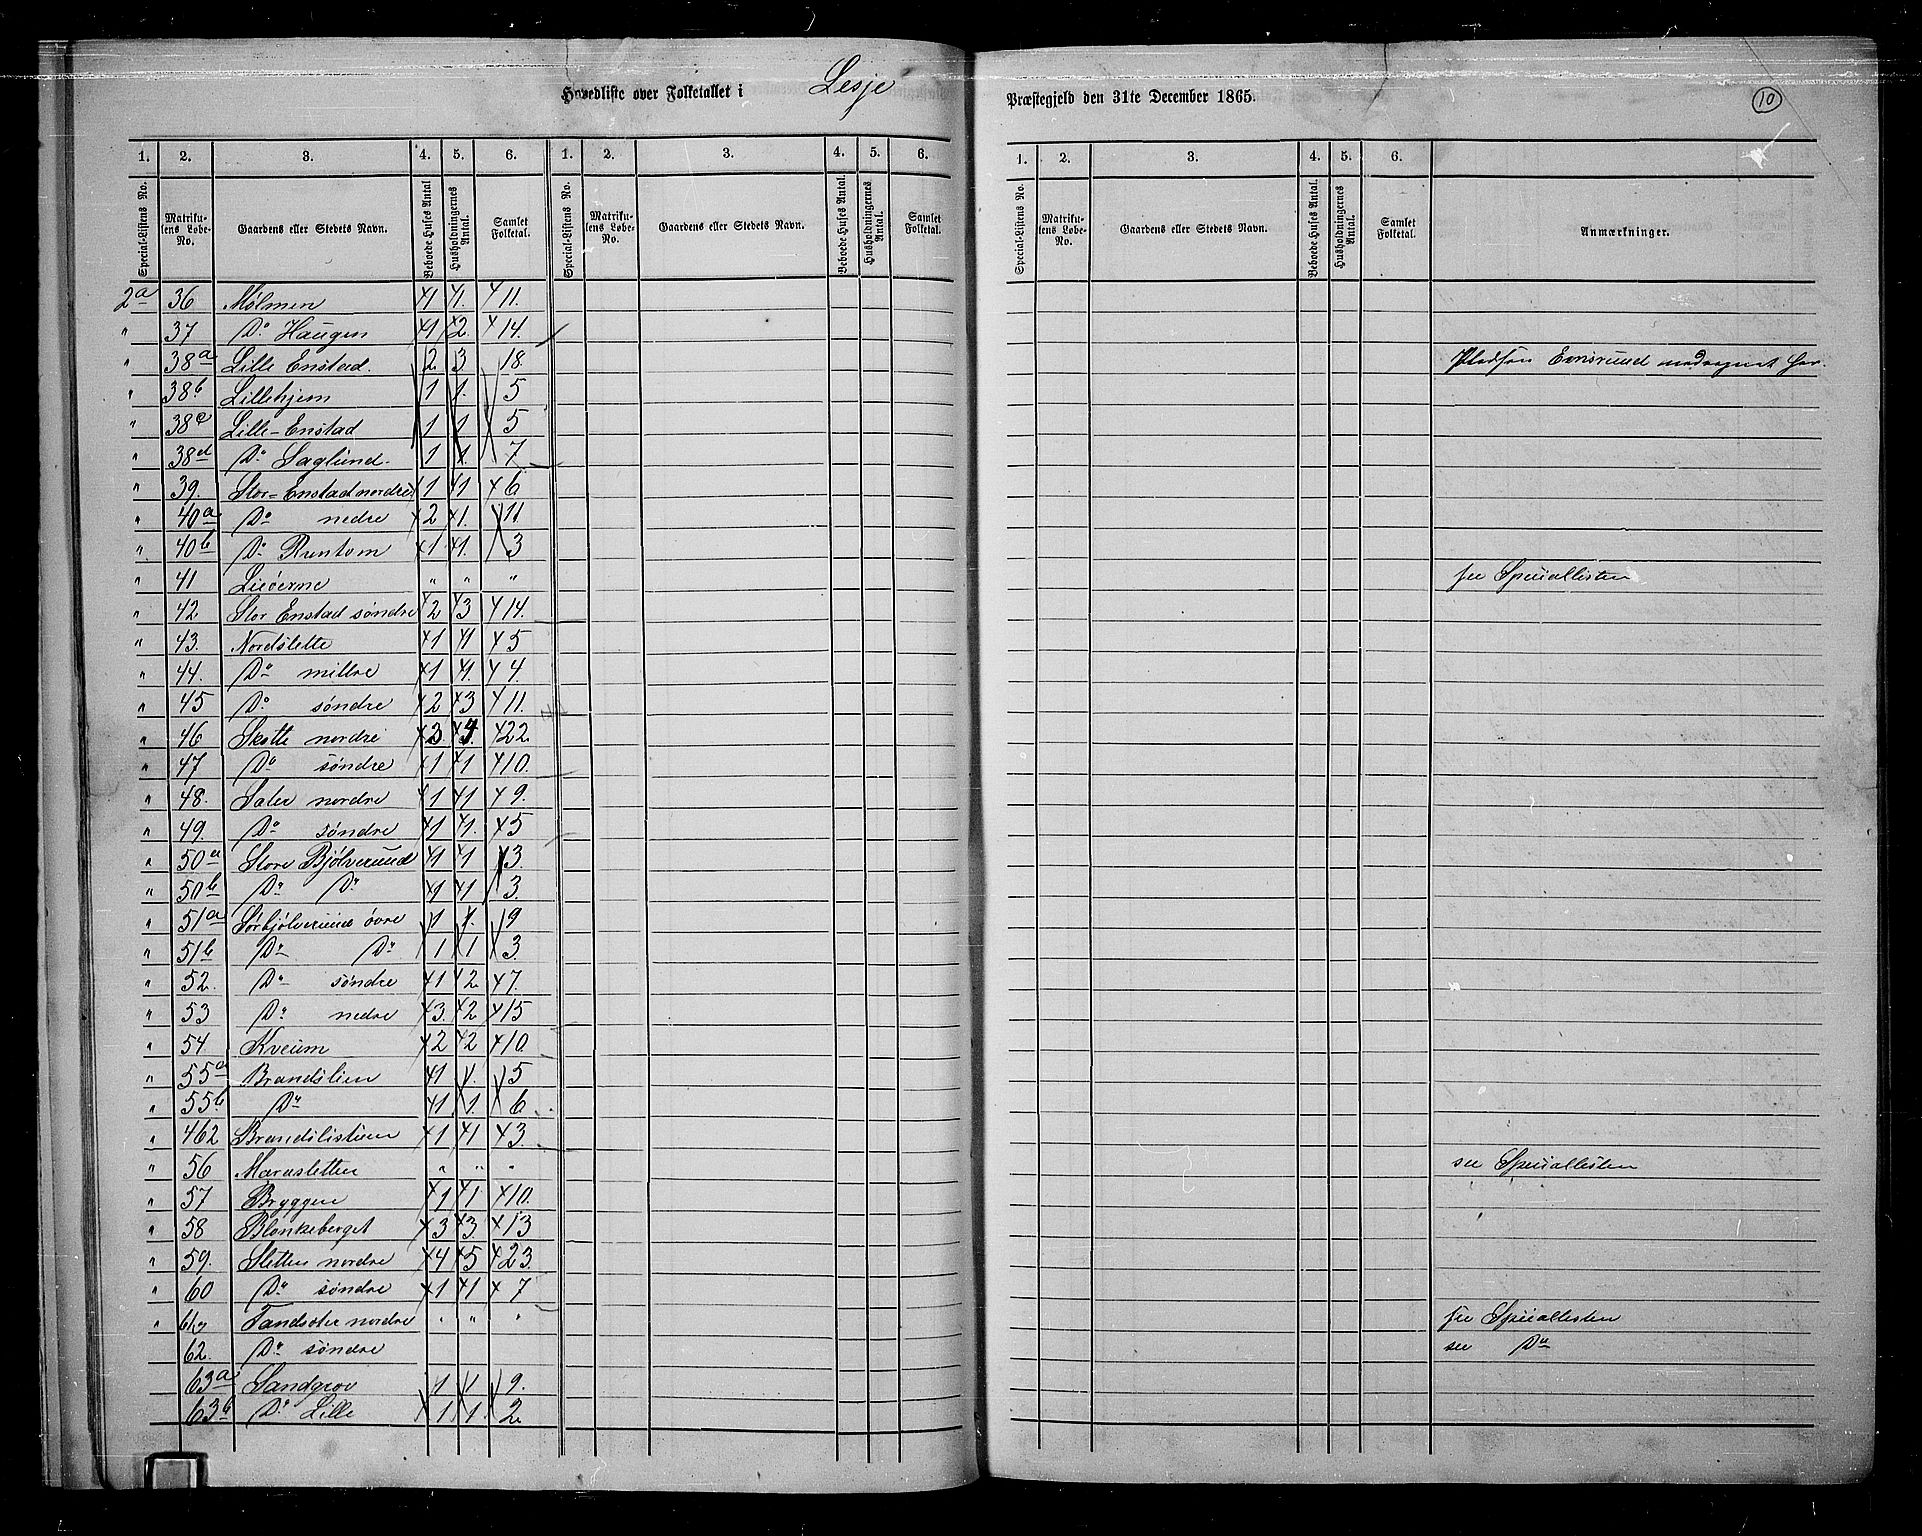 Hovedliste over Folketallet i Lesje Præstegjeld den 31te December 1865. 10
1. 2. 3. 4. 5. 6. 1. 2. 3. 4. 5. 6. 1. 2. 3. 4. 5. 6.
Special-Listens No. Matrikulens Løbe-No. Gaardens eller Stedets Navn. Beboede Huses Antal Husholdningernes Antal. Samlet Folketal. Special-Listens No. Matrikulens Løbe-No. Gaardens eller Stedets Navn. Beboede Huses Antal. Husholdningernes Antal. Samlet Folketal. Special-Listens No. Matrikulens Løbe-No. Gaardens eller Stedets Navn. Beboede Huses Antal. Husholdningernes Antal. Samlet Folketal. Anmærkninger.
2a 36 Mølmen 1 1. 11.
" 37 Do Haugen 1 2. 14.
" 38a Lille Enstad. 2 3 18. Pladsen Einsrund medregnet her.
" 38b Lillehjem 1 1. 5
" 38c Lille-Enstad 1 1 5
" 38d Do Saglund. 1 1. 7
" 39. Stor-Enstad nordre 1 1 6
" 40a Do nedre 2 1. 11.
" 40b Do Runtom 1 1. 3
" 41 Liøerne " " " see Speciallisten
" 42 Stor Enstad søndre 2 3 14.
" 43. Nordslette 1 1 5
" 44. Do midtre 1 1. 4
" 45 Do søndre 2 3 11.
" 46 Skotte nordre 3 4. 22.
" 47 Do søndre 1 1 10.
" 48. Sæter nordre 1 1 9.
" 49. Do søndre 1 1. 5
" 50a Store Bjølverud 1 1 3.
" 50b Do Do 1 1 3.
" 51a Sørbjølverud øvre 1 1. 9
" 51b Do Do 1 1 3.
" 52. Do søndre 1 2. 7.
" 53 Do nedre 3. 2 15
" 54 Kveum 2 2 10.
" 55a Brandslien 1 1. 5
" 55b Do 1 1. 6
" 462 Brandslistuen 1 1 3.
" 56 Marasletten " " " see Speciallisten
" 57 Bryggen 1 1. 10.
" 58 Blankeberget 3 3. 13
" 59. Sletten nordre 4 5 23.
" 60 Do søndre 1 1 7
" 61 Tandsæter nordre " " " see Speciallisten
62. Do søndre see Do
63a Sandgrov 1 1 9.
63b Do Lille 1 1 2.